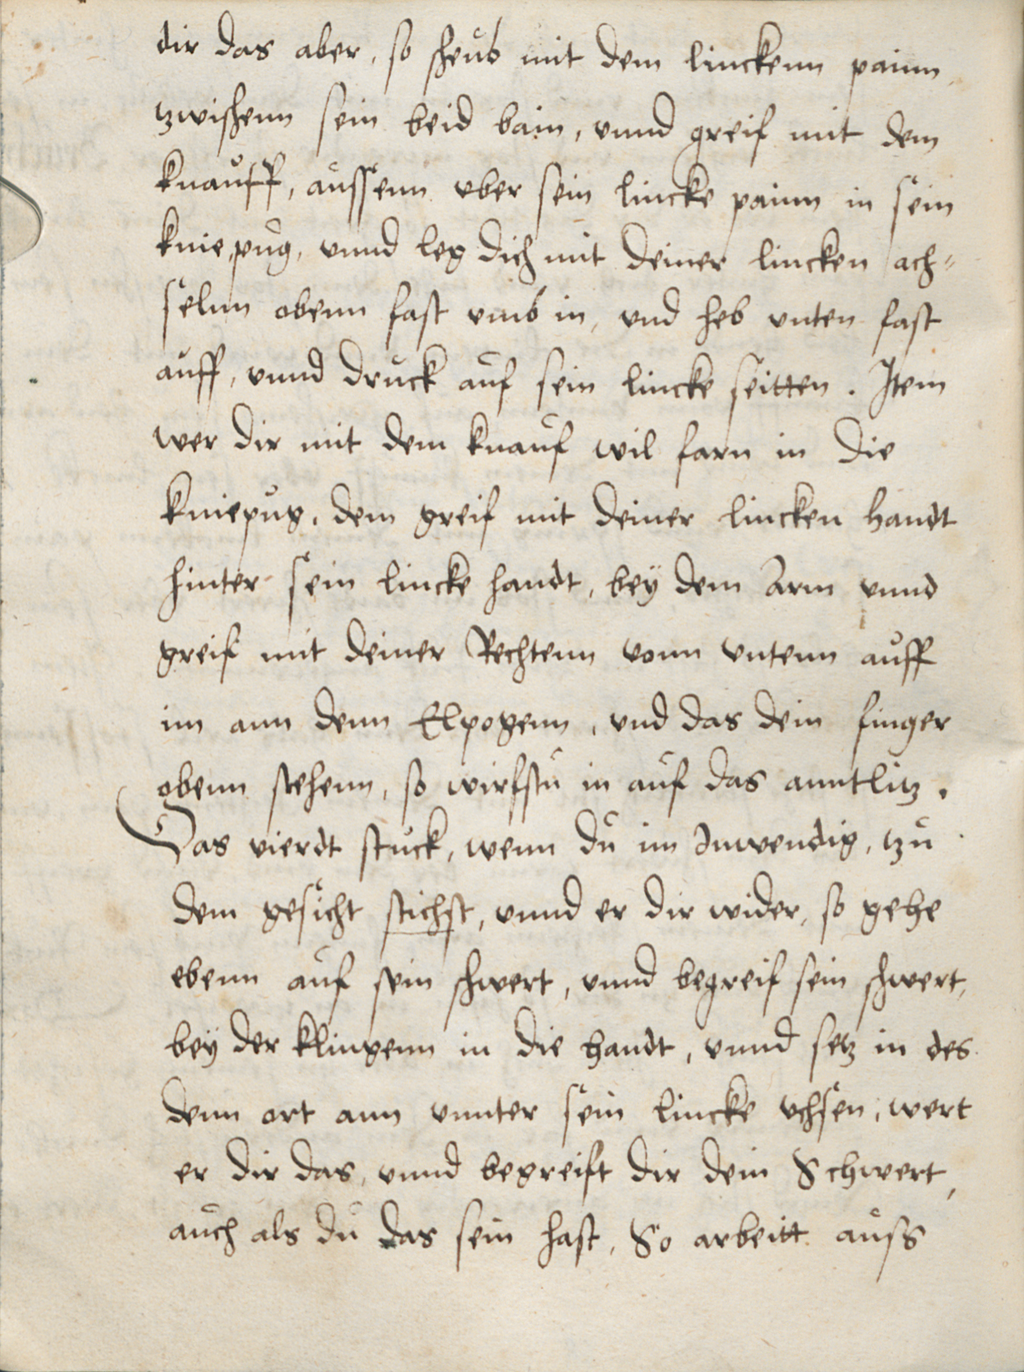 dir das aber, so scheub mit dem linckenn painn
tzwischenn sein beid bain, vnnd greif mit dem
knauff, aussenn vber sein lincke painn in sein
knie pug, vnnd leg dich mit deiner lincken ach-
selnn obenn fast vmb in, vnd heb vnten fast
auff, vnnd druck auf sein lincke seitten. Item
wer dir mit dem knauf wil farn in die
kniepug, dem greif mit deiner lincken handt
hinter sein lincke handt, bey dem Arm vnnd
greif mit deiner Rechtenn vonn vntenn auff
im ann denn Elpogenn, vnd das dein finger
obenn stehenn, so wirfstu in auf das anntlitz.
Das vierdt stuck, wenn du im Inwendig, tzu
dem gesicht stichst, vnnd er dir wider, so gehe
ebenn auf sein schwert, vnnd begreif sein schwert,
bey der klingenn in die handt, vnnd setz in des
denn ort ann vnnter sein lincke vchsen, wert
er dir das, vnnd begreift dir dein Schwert,
auch als du das sein hast, So arbeitt auss